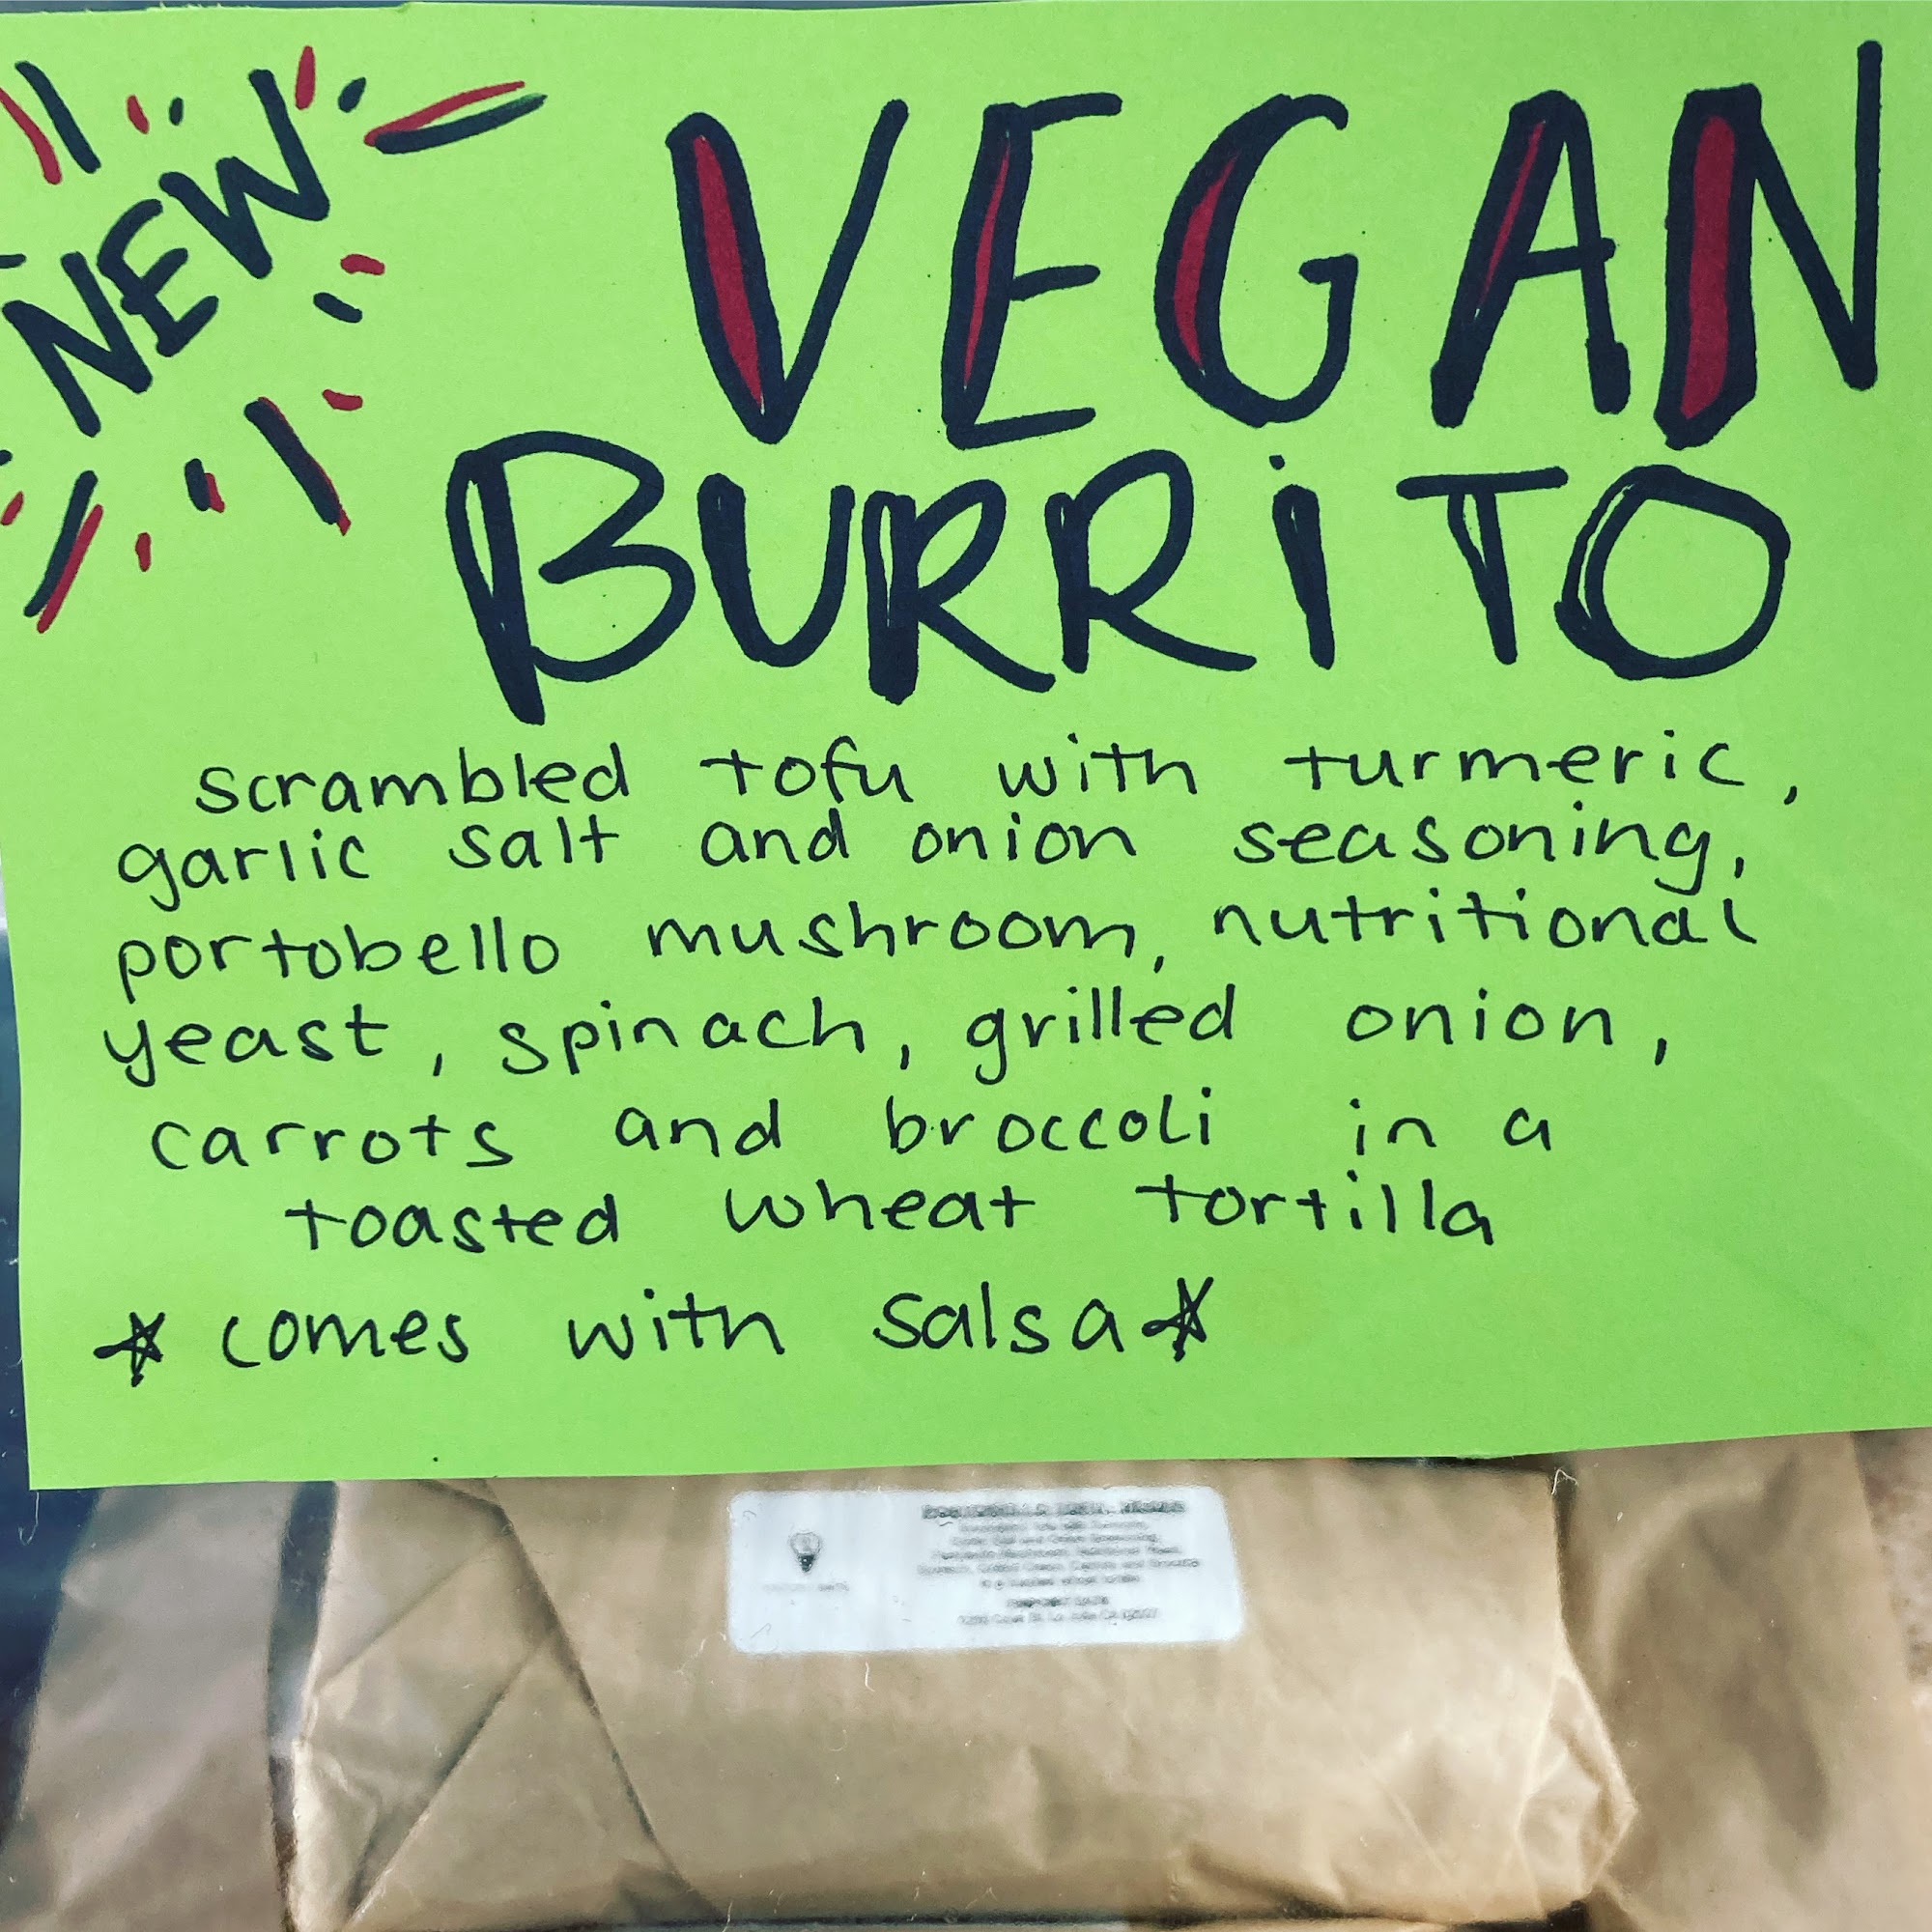 NEW
VEGAN
BURRiTO
scrambled tofu with turmeric,
garlic salt and onion seasoning,
portobello mushroom, nutritional
yeast, spinach, grilled onion,
carrots and broccoli in a
toasted wheat tortilla
☆ comes with salsa ☆